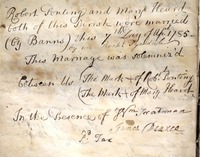 Robert Ponting and Mary Heart
both of this Parish were married
(by Banns) this 7th Day of Apl. 1755
by me
This Marriage was solemniz'd
between Us The Mark of Robt. Ponting
The Mark of Mary Heart
In the Presence of Wm
James Pearce
Pd. Tax